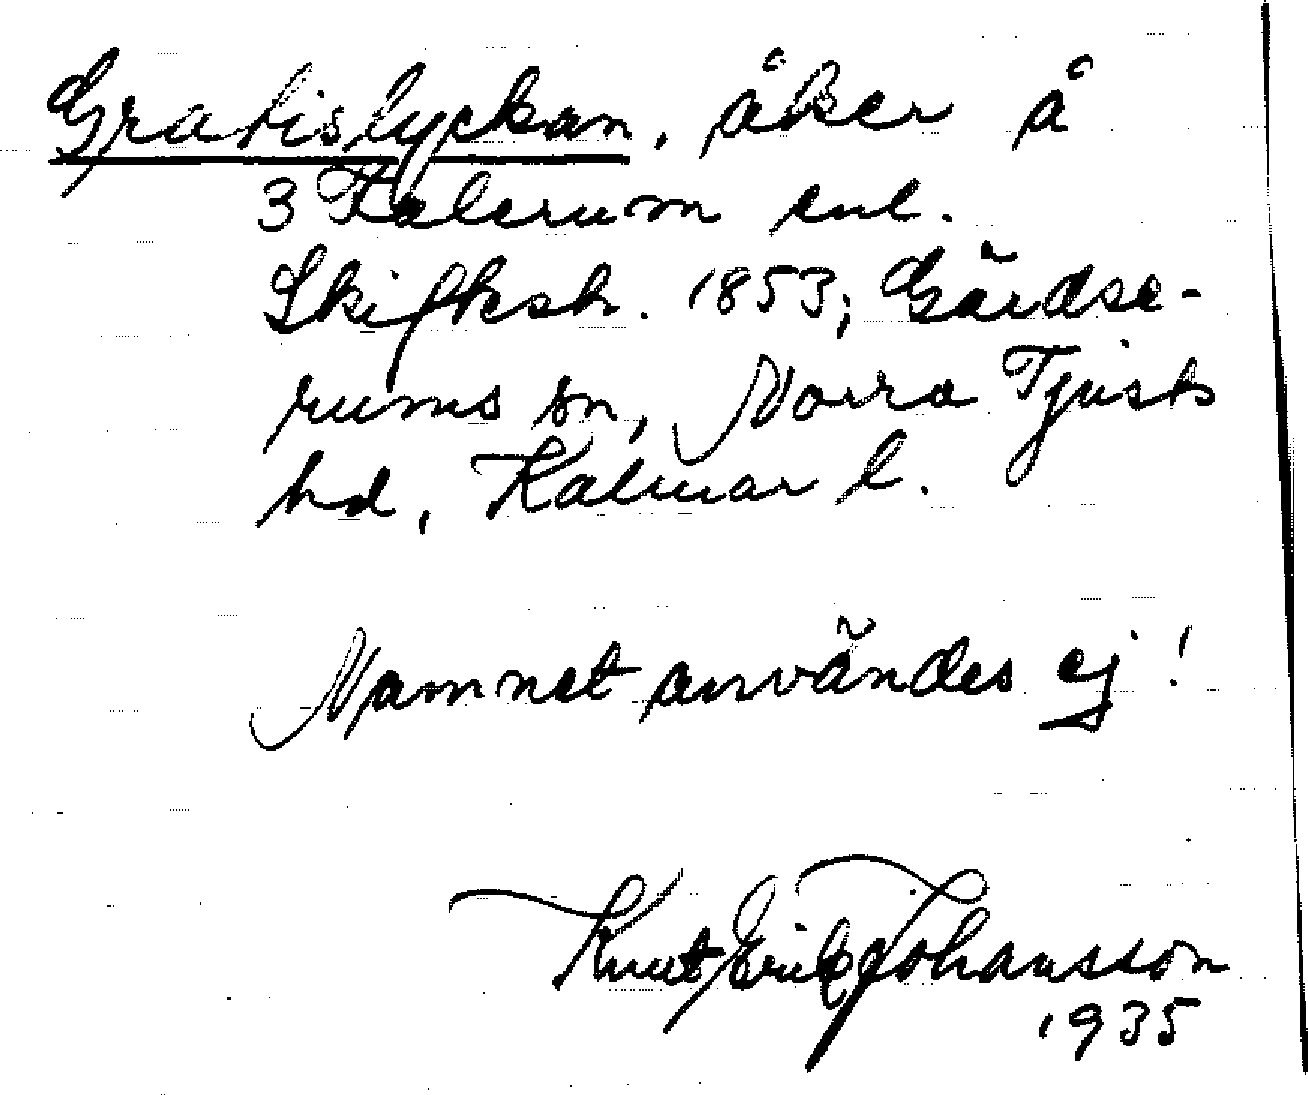 Gratislyckan, åker å
3 Falerum enl.
Skifksh. 1853; Gärdse-
rums sn, Norra Tjusts
hd, Kalmar l.
Namnet användes ej!
Knut Erik Johansson
1935